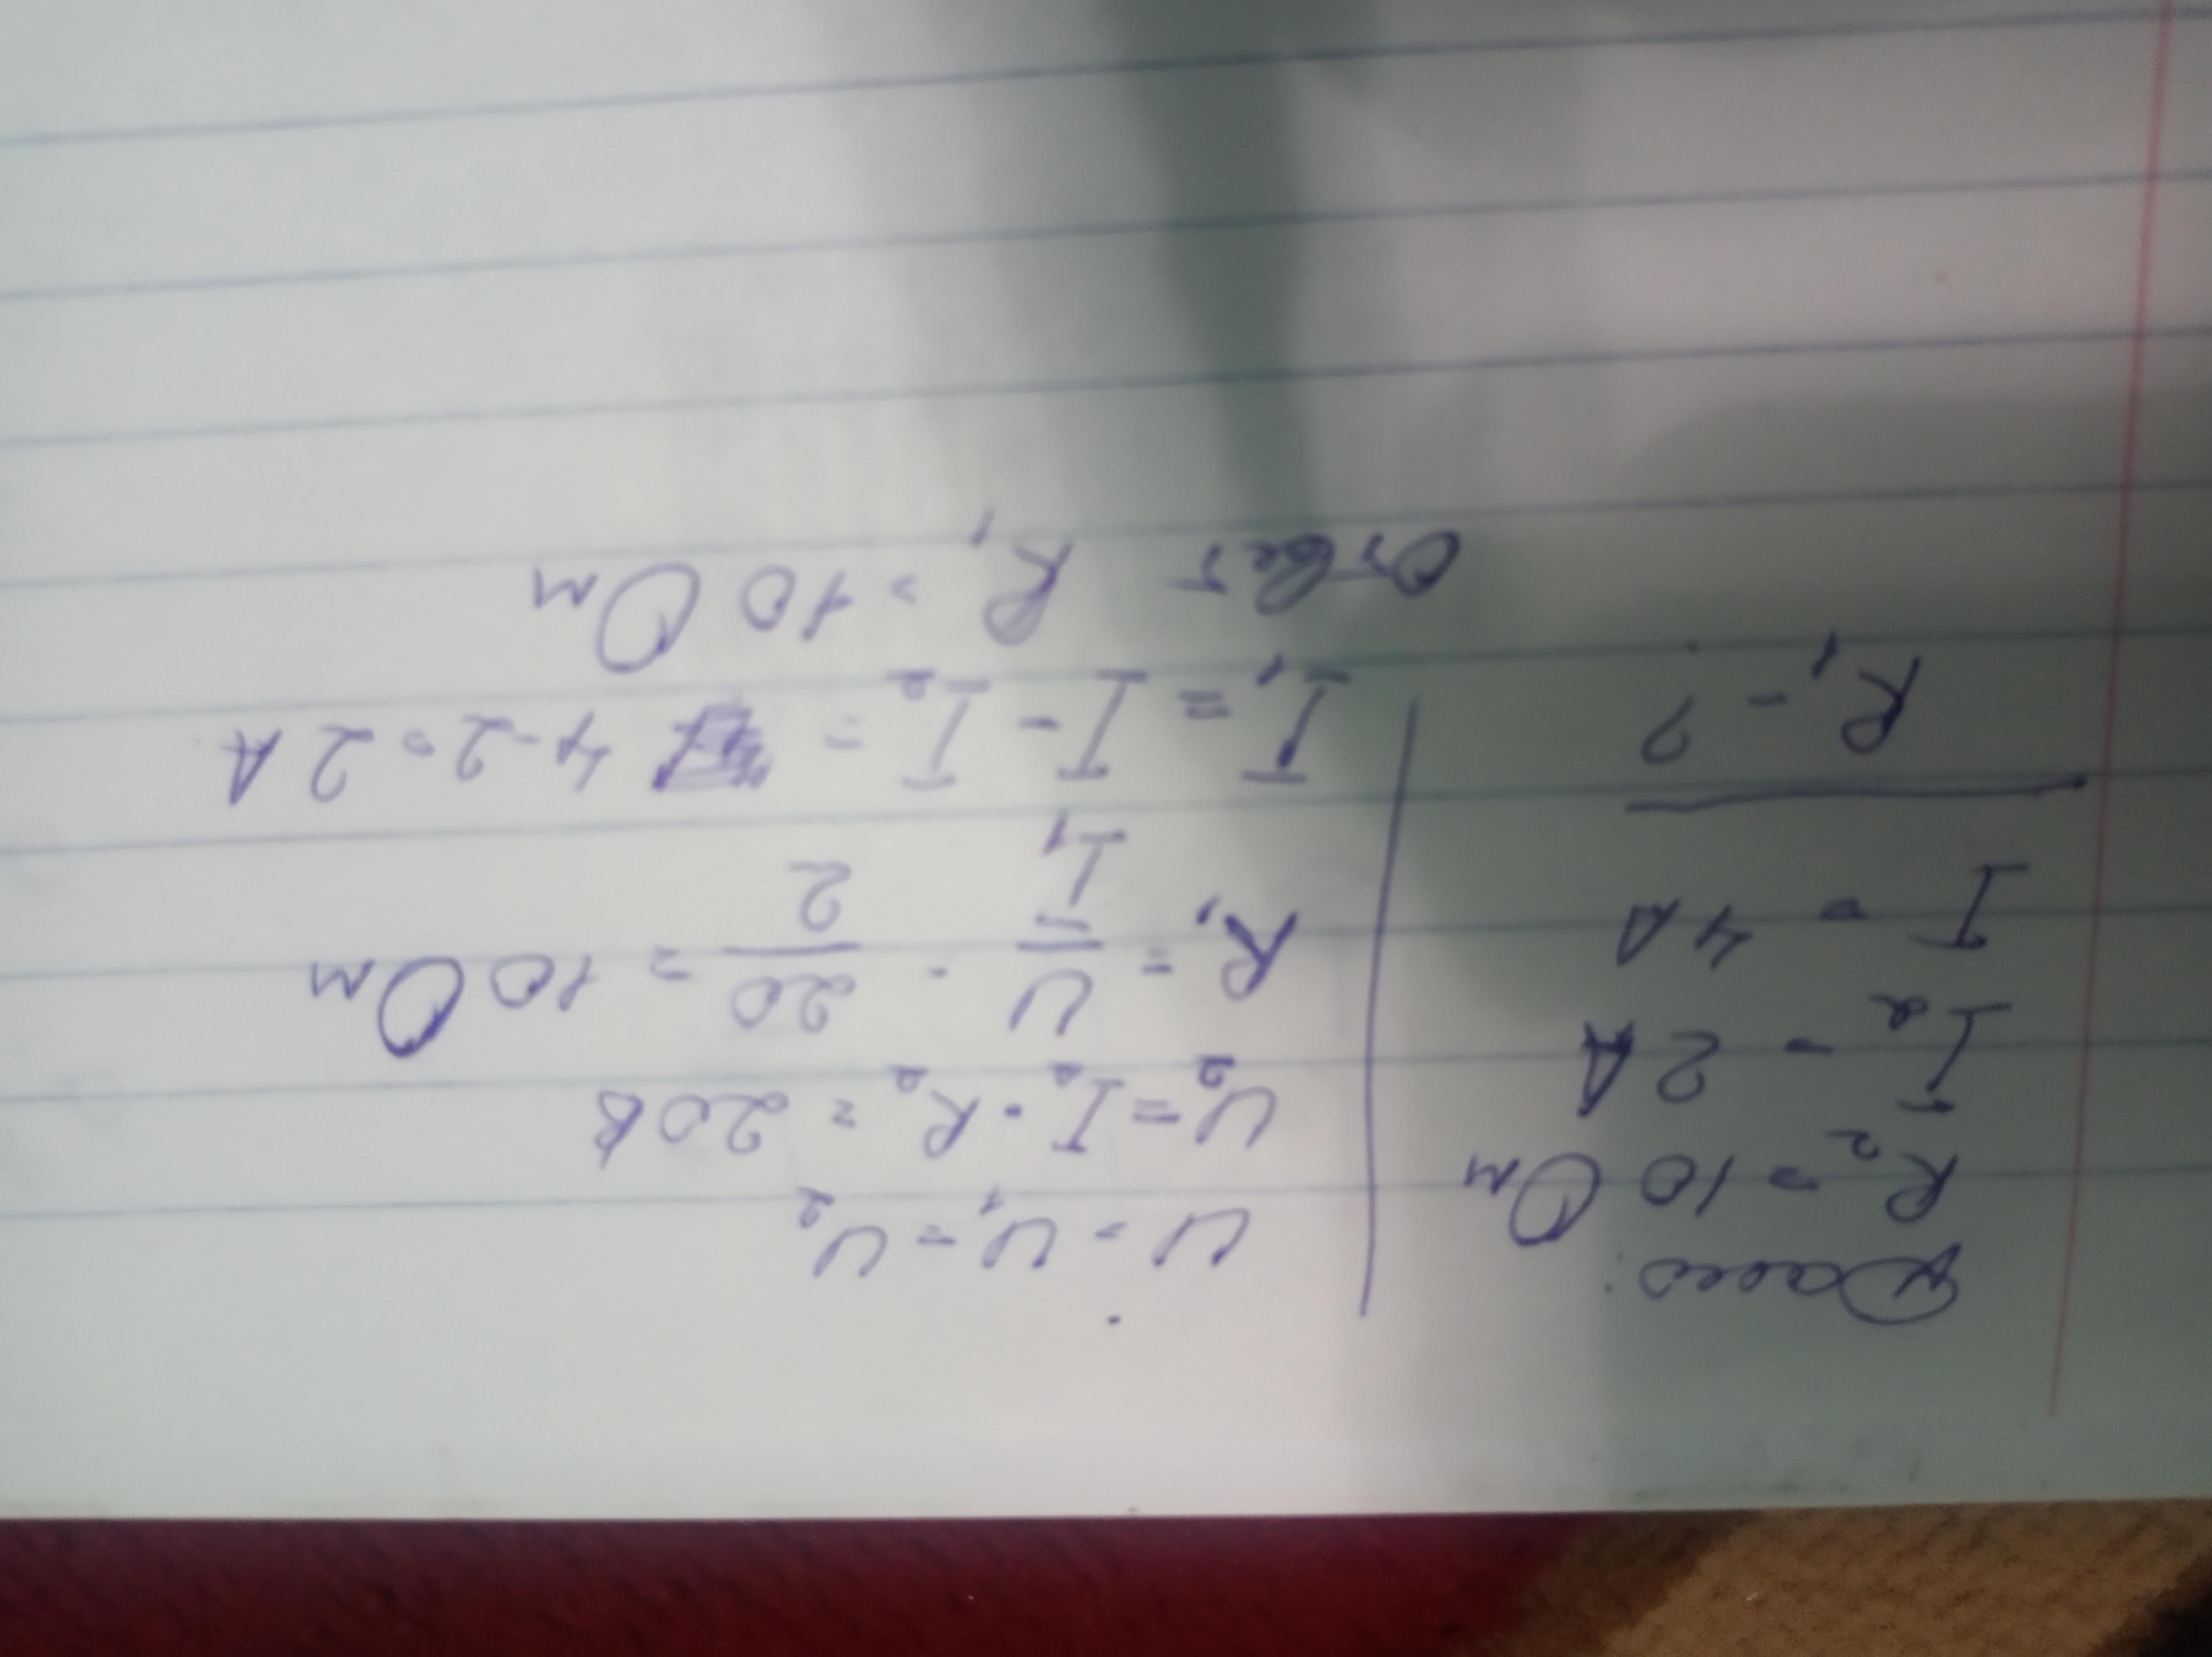 Дано:
R₂ = 10 Ом
I₂ - 2А
I = 4А
R₁ - ?
U = U₁ = U₂
U₂ = I₂ · R₂ = 20В
R₁ = U/I₁ = 20/2 = 10 Ом
I₁ = I - I₂ = 4-2=2А
Ответ R₁ = 10 Ом